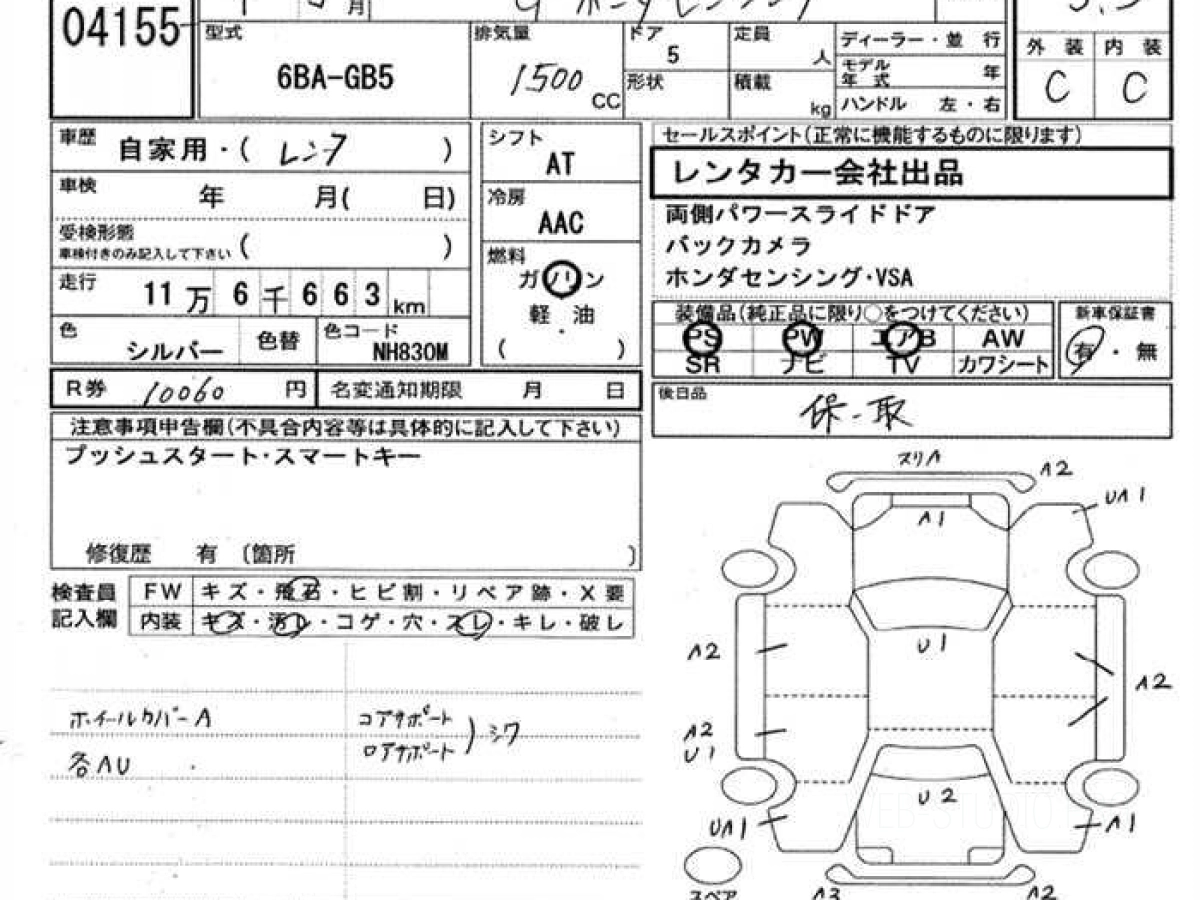 04155
月
G ホンダセンシング
型式
6BA-GB5
排気量
1500
CC
ドア
5
形状
定員
人
積載
kg
ディーラー・並 行
モデル
年 式
年
ハンドル 左・右
外 装
内 装
C
C
車歴
自家用・( レンタ )
車検
年 月( 日)
受検形態
車検付きのみ記入して下さい ( )
走行
11万 6千 6 6 3 km
色
シルバー
色替
色コード
NH830M
シフト
AT
冷房
AAC
燃料
ガソリン
軽・油
( )
セールスポイント(正常に機能するものに限ります)
レンタカー会社出品
両側パワースライドドア
バックカメラ
ホンダセンシング・VSA
装備品(純正品に限り○をつけてください)
PS PW エアB AW
SR ナビ TV カワシート
新車保証書
有・無
R券 10060 円
名変通知期限 月 日
後日品
保-取
注意事項申告欄(不具合内容等は具体的に記入して下さい)
プッシュスタート・スマートキー
修復歴 有 〔箇所 〕
検査員
記入欄
FW キズ・飛石・ヒビ割・リペア跡・X要
内装 キズ・汚レ・コゲ・穴・スレ・キレ・破レ
ホイールカバーA
各AU
コアサポート
ロアサポート
)シワ
スリA
A2
UA1
A1
U1
A2
A2
A2
U1
U2
UA1
A1
スペア
A3
A2